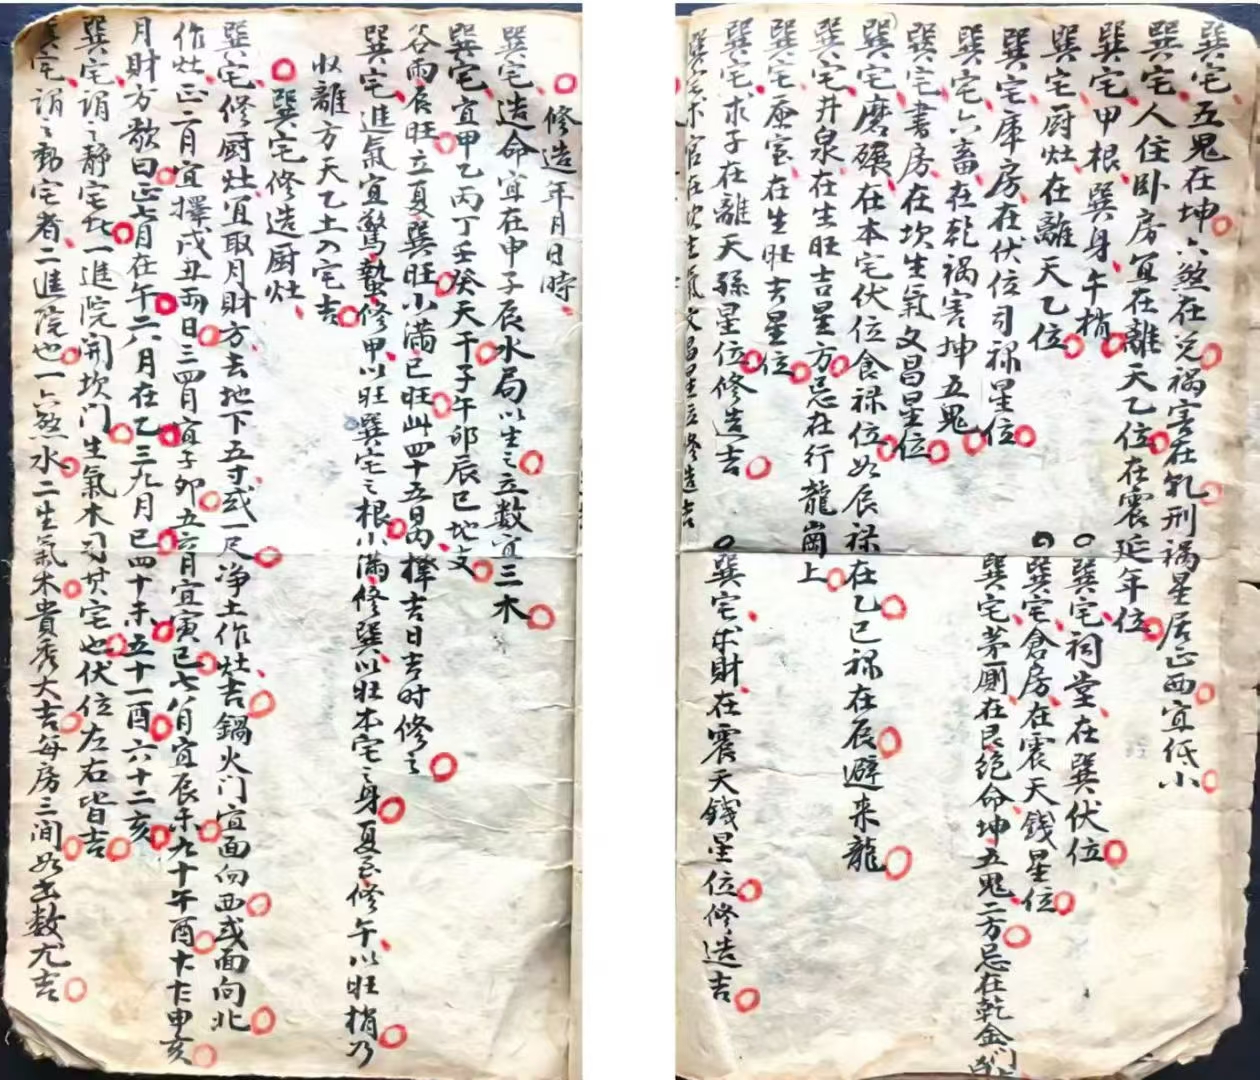 巽宅五鬼在坤六煞在兑禍害在乹刑禍星居正西宜低小
巽宅人住卧房宜在離天乙位在震延年位
巽宅甲根巽身午梢
巽宅祠堂在巽伏位
巽宅厨灶在離天乙位
巽宅倉房在震天錢星位
巽宅庫房在伏位司禄星位
巽宅茅厠在艮絶命坤五鬼二方忌在乾金
巽宅六畜在乾禍害坤五鬼
巽宅書房在坎生氣文昌星位
巽宅磨碾在本宅伏位食禄位如辰禄在乙巳禄在辰避来龍
巽宅井泉在生旺吉星方忌在行龍崗上
巽宅在生旺吉星位
巽宅求子在離天孫星位修造吉
巽宅求財在震天錢星位修造吉
巽宅求官在坎生氣文昌星位修造吉
修造年月日時
巽宅造命宜在申子辰水局以生之立数宜三木
巽宅宜甲乙丙丁壬癸天干子午卯辰巳地支
谷雨辰旺立夏巽旺小满巳旺此四十五日内擇吉日吉时修之
巽宅進氣宜驚蟄修甲以旺巽宅之根小滿修巽以旺本宅之身夏至修午以旺梢乃
以離方天乙土入宅吉
巽宅修造厨灶
巽宅修厨灶宜取月財方去地下五寸或一尺净土作灶吉鍋火门宜面向西或面向北
作灶正二月宜擇戌丑両日三四月宜子卯五六月宜寅巳七八月宜辰未九十午酉十十申亥
月財方歌曰正七月在午二八月在乙三九月巳四十未五十一酉六十二亥
巽宅谓之静宅此一進院開坎门生氣木司其宅也伏位左右皆吉
巽宅谓之動宅者二進院也一六煞水二生氣木貴秀大吉每房三间如玄数尤吉